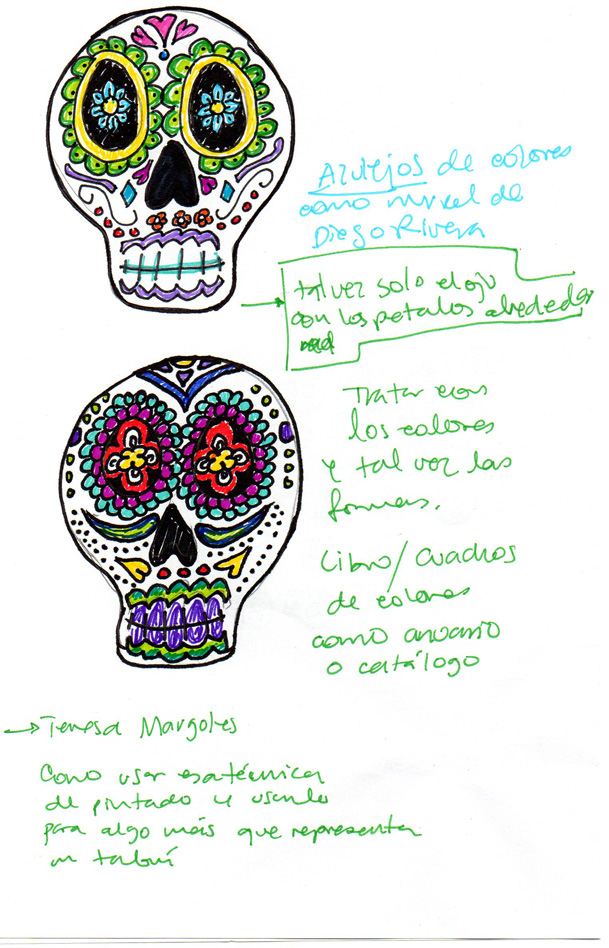 Azulejos de colores
como mural de
Diego Rivera
tal vez solo el ojo
con los petalos alrededor
Tratar con
los colores
y tal vez las
formas.
Libro/Cuadros
de colores
como anuario
o catálogo
→ Teresa Margoles
Como usar esa técnica
de pintado y usarlo
para algo más que representar
un tabú